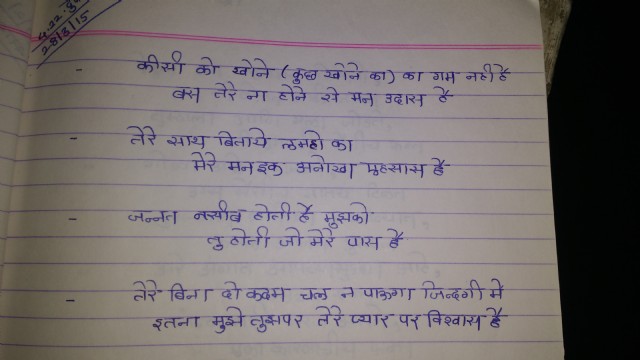 28/8/15
- कीसी को खोने (कुछ खोने का) का गम नही है
बस तेरे ना होने से मन उदास है
- तेरे साथ बिताये लमहो का
मेरे मन इक अनोखा एहसास है
- जन्नत नसीब होती है मुझको
तु होती जो मेरे पास है
- तेरे बिना दो कदम चल न पाऊगा जिन्दगी मे
इतना मुझे तुझपर तेरे प्यार पर विश्वास है